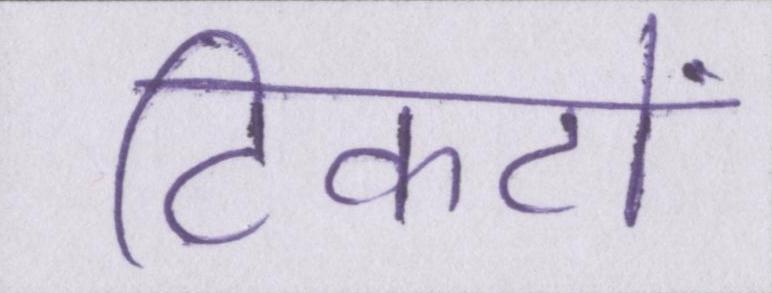 टिकटों